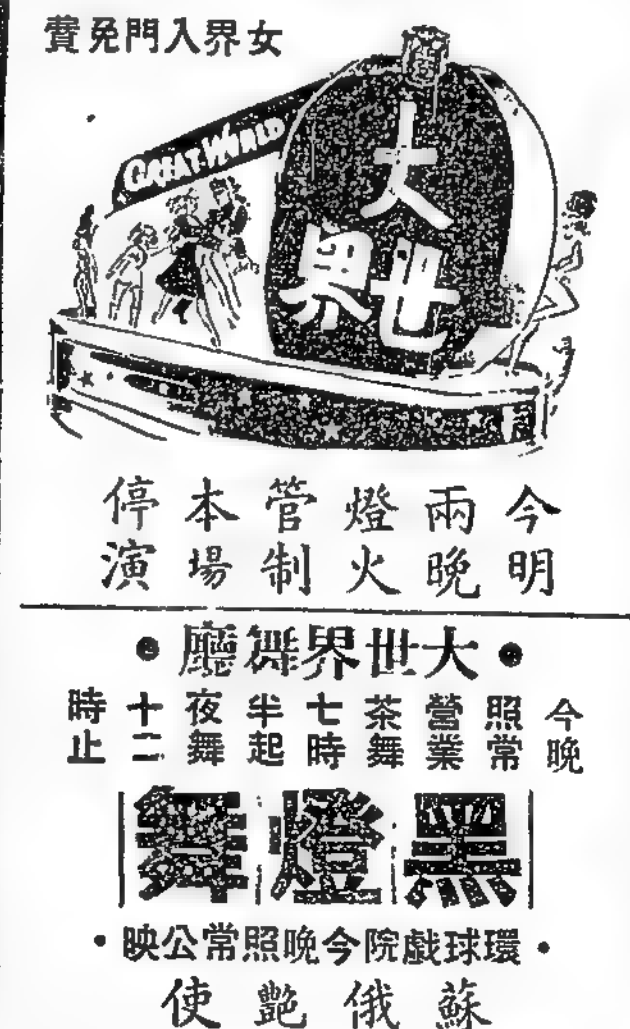 女界入門免費
GREAT WORLD
大
世界
今明兩晚燈火管制本場停演
大世界舞廳
今晚照常營業茶舞七時半起夜舞十二時止
黑燈舞
環球戲院今晚照常公映
蘇俄艷使